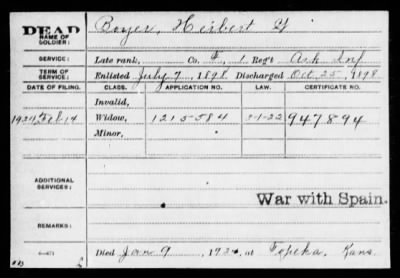 DEAD Boyer, Herbert G
NAME OF
SOLDIER:
SERVICE: Late rank, Co. F, 1 Reg't Ark Inf
TERM OF
SERVICE: Enlisted July 7, 1898 Discharged Oct 25, 1898
DATE OF FILING. CLASS. APPLICATION NO. LAW. CERTIFICATE NO.
Invalid,
Feb 14 Widow, 1215-584 947894
Minor,
ADDITIONAL
SERVICES:
War with Spain.
REMARKS:
Died Jan 9, at Topeka, Kans.